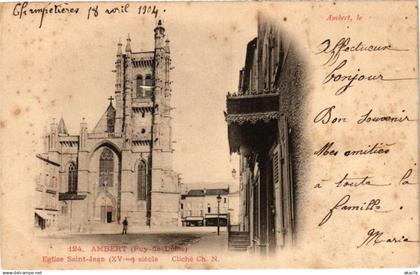 Champetières 18 avril 1904
Ambert, le
Affectueux
bonjour
Bon souvenir
Mes amitiés
à toute la
famille.
Maria
124. AMBERT (Puy-de-Dôme)
Eglise Saint-Jean (XVme) siècle Cliché Ch. N.